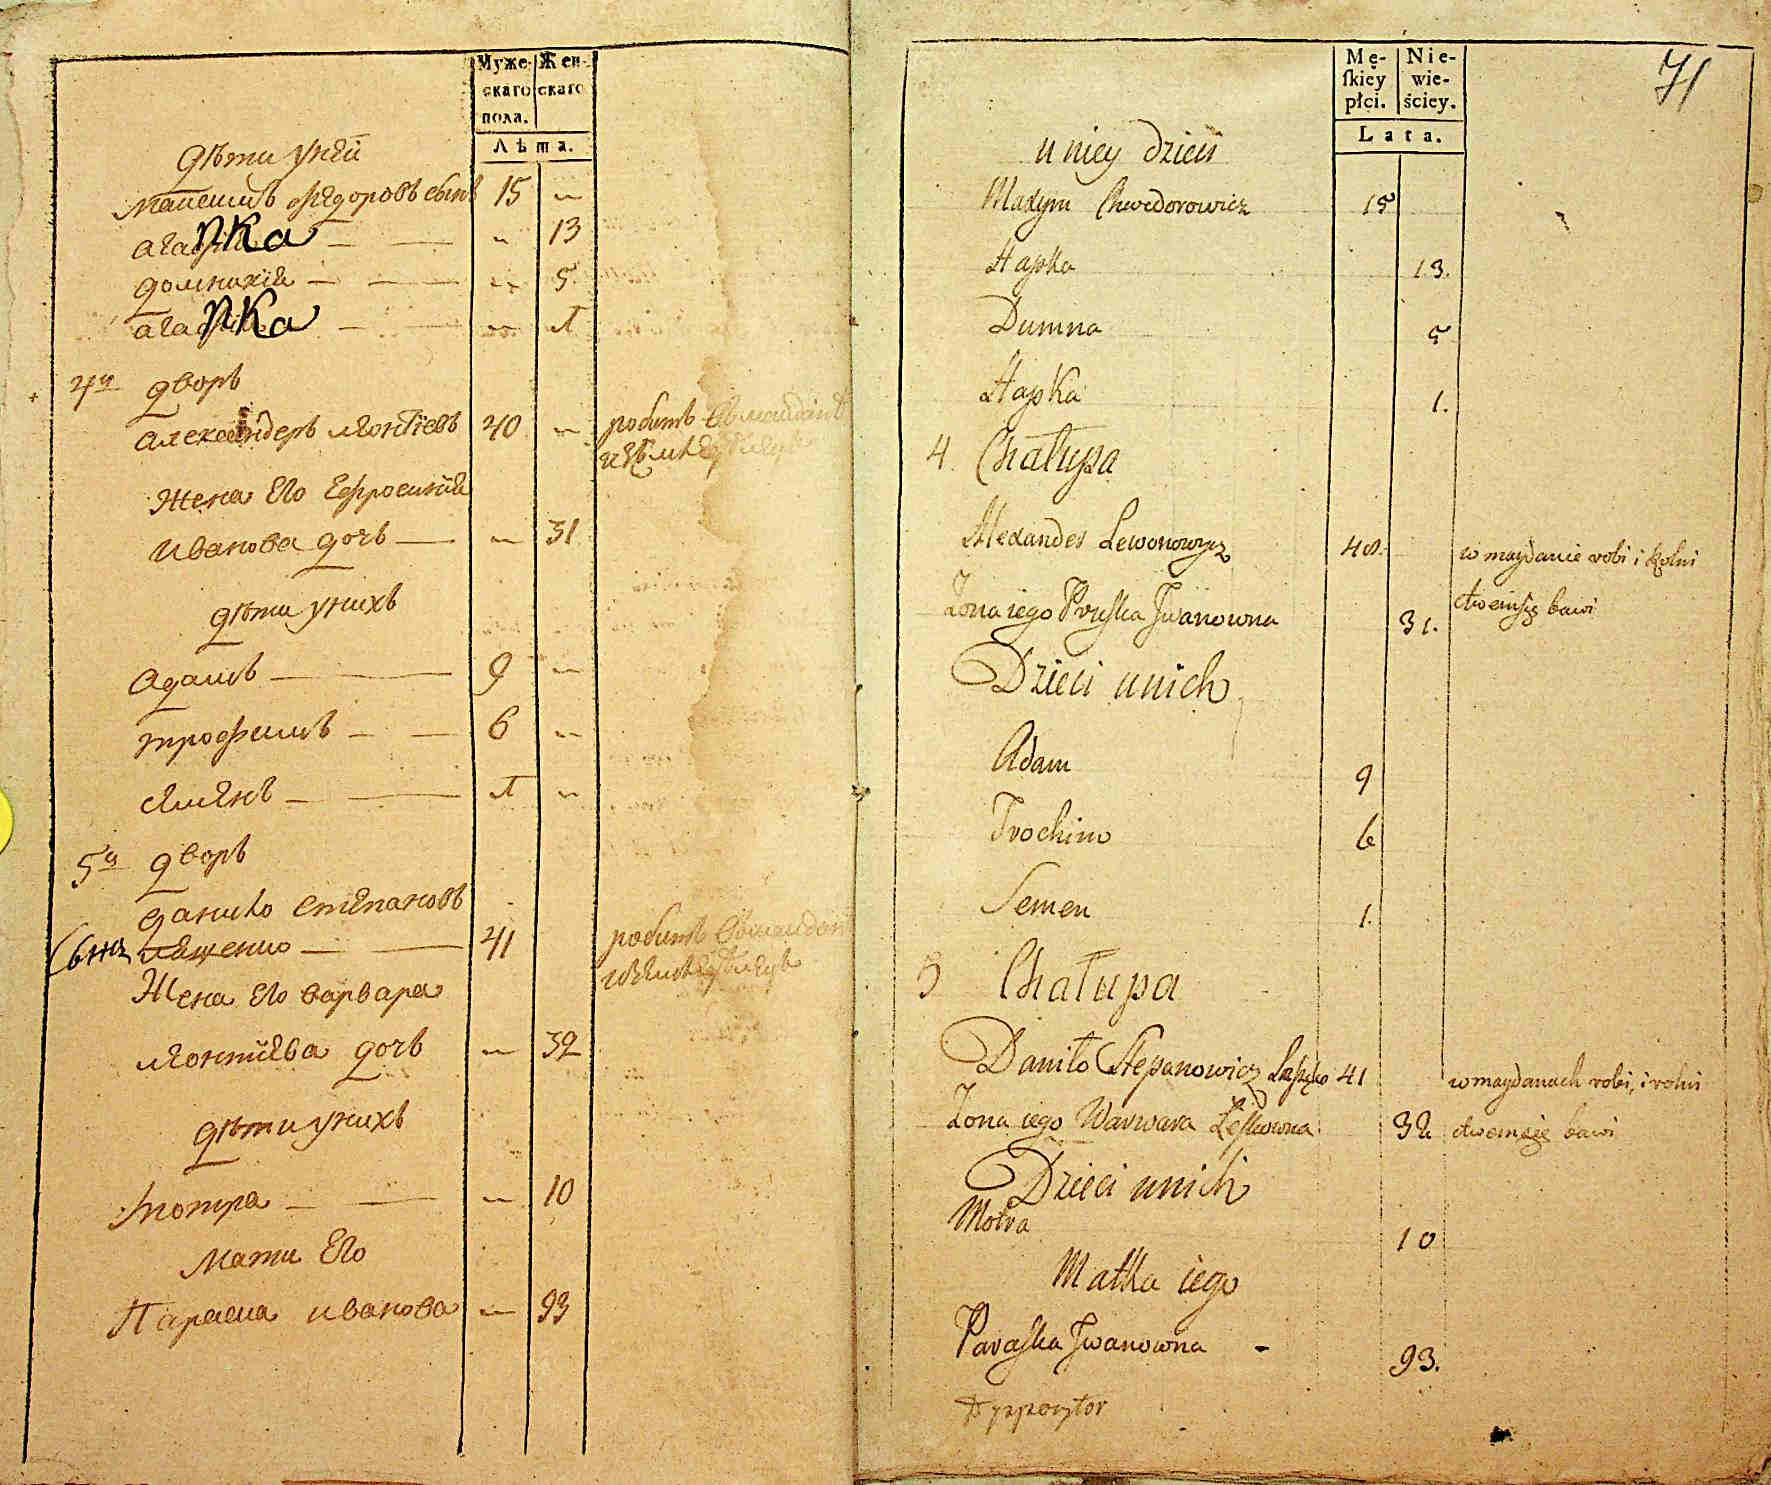 Муже-
скаго
пола.
Жен-
скаго
Лѣта.
дѣти унеи
Маѯимъ Федоровъ сынъ 15 —
агапка — — — 13
домникия — — — 5
агапка — — — 1
4й дворъ
александеръ леонтіевъ 40 — робитъ
Жена Его Ефросиния
иванова дочъ — — 31
дѣти унихъ
адамъ — — 9 —
трофимъ — — 6 —
семенъ — — 1 —
5й дворъ
данило степановъ
41 робитъ
Жена Его варвара
леонтиева дочъ — 32
дѣти унихъ
мотра — — — 10
Мати Его
Параска иванова — 93
71
Mę-
ſkiéy
płci.
Nie-
wie-
ściey.
Lata.
u niey dzieci
Maxym Chwedorowicz 15
Hapka 13.
Dumna 5
Hapka 1.
4. Chałupa
Alexander Lewonowicz 40. w maydanie robi i Rolni
Żona iego Pruſka Jwanowna 31. ctwem się bawi
Dzieci unich
Adam 9
Trochim 6
Semen 1.
5 Chałupa
Daniło Stepanowicz 41 w maydanach robi, i rolni
Żona iego Warwara 32 ctwem się bawi
Dzieci unich
Motra 10
Matka iego
Paraſka Jwanowna - 93.